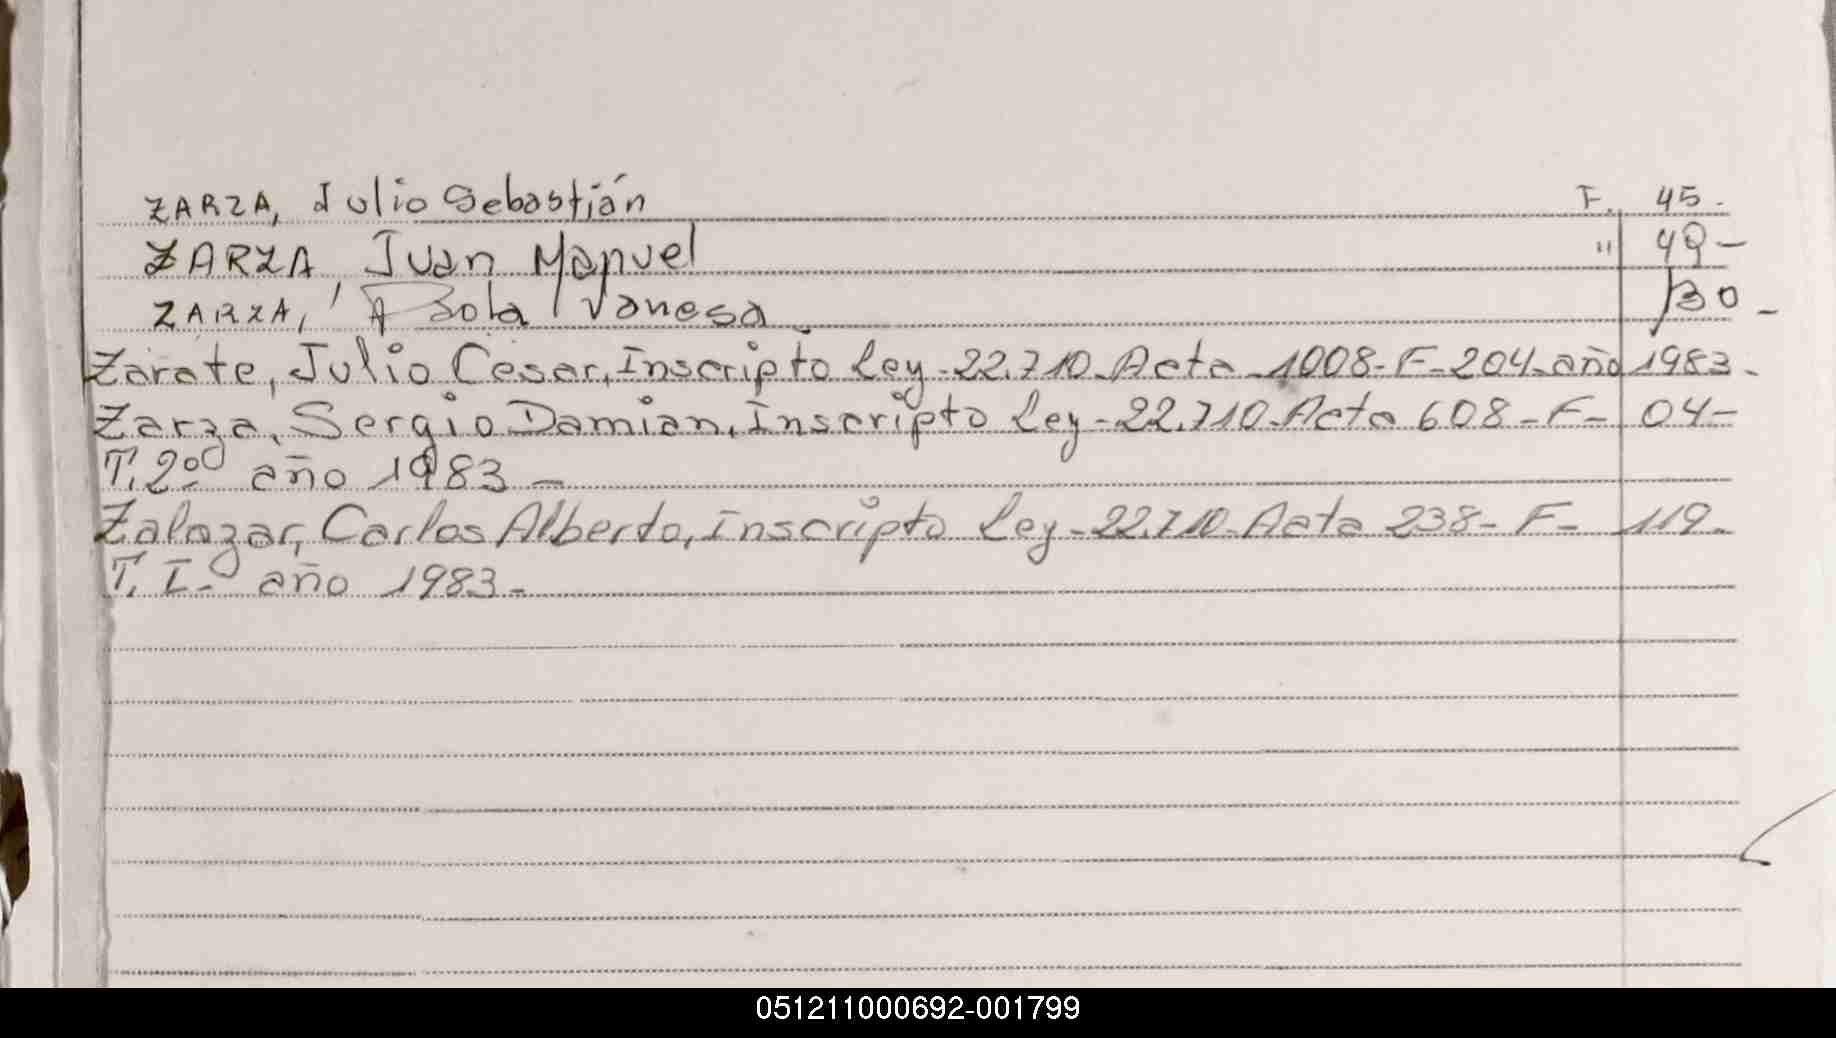 ZARZA, Julio Sebastián F. 45.
ZARZA, Juan Manuel " 49-
ZARZA, Vanesa. 130-
Zarate, Julio Cesar, Inscripto Ley-22.710-Acta-1008-F-204-año 1983-
Zarza, Sergio Damian, Inscripto Ley-22.710-Acta 608-F- 04-
T. 2º año 1983-
Zalazar, Carlos Alberto, Inscripto Ley-22.710-Acta 238-F- 119-
T. I-º año 1983-
051211000692-001799